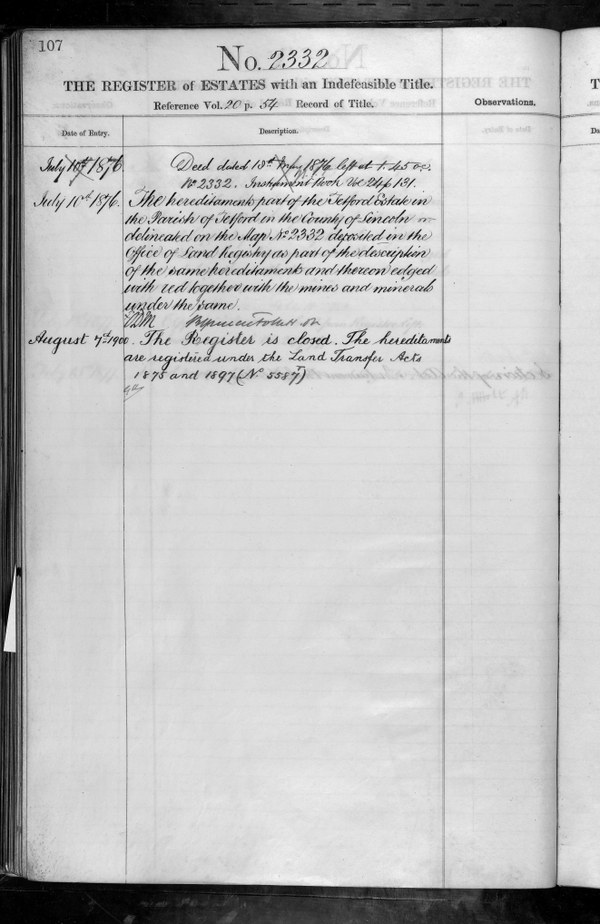 107
No. 2332
THE REGISTER of ESTATES with an Indefeasible Title.
Reference Vol. 20 p. 54 Record of Title.
Observations.
Date of Entry.
Description.
July 10th 1876
Deed dated 13th May 1876 left at
No 2332. Instrument Book Vol 24 p 131.
July 10th 1876.
The hereditaments part of the Telford Estate in
the Parish of Telford in the County of Lincoln
delineated on the Map No 2332 deposited in the
Office of Land Registry as part of the description
of the same hereditaments and thereon edged
with red together with the mines and minerals
under the same.
August 7th 1900.
The Register is closed. The hereditaments
are registered under the Land Transfer Acts
1875 and 1897 (No 5587)